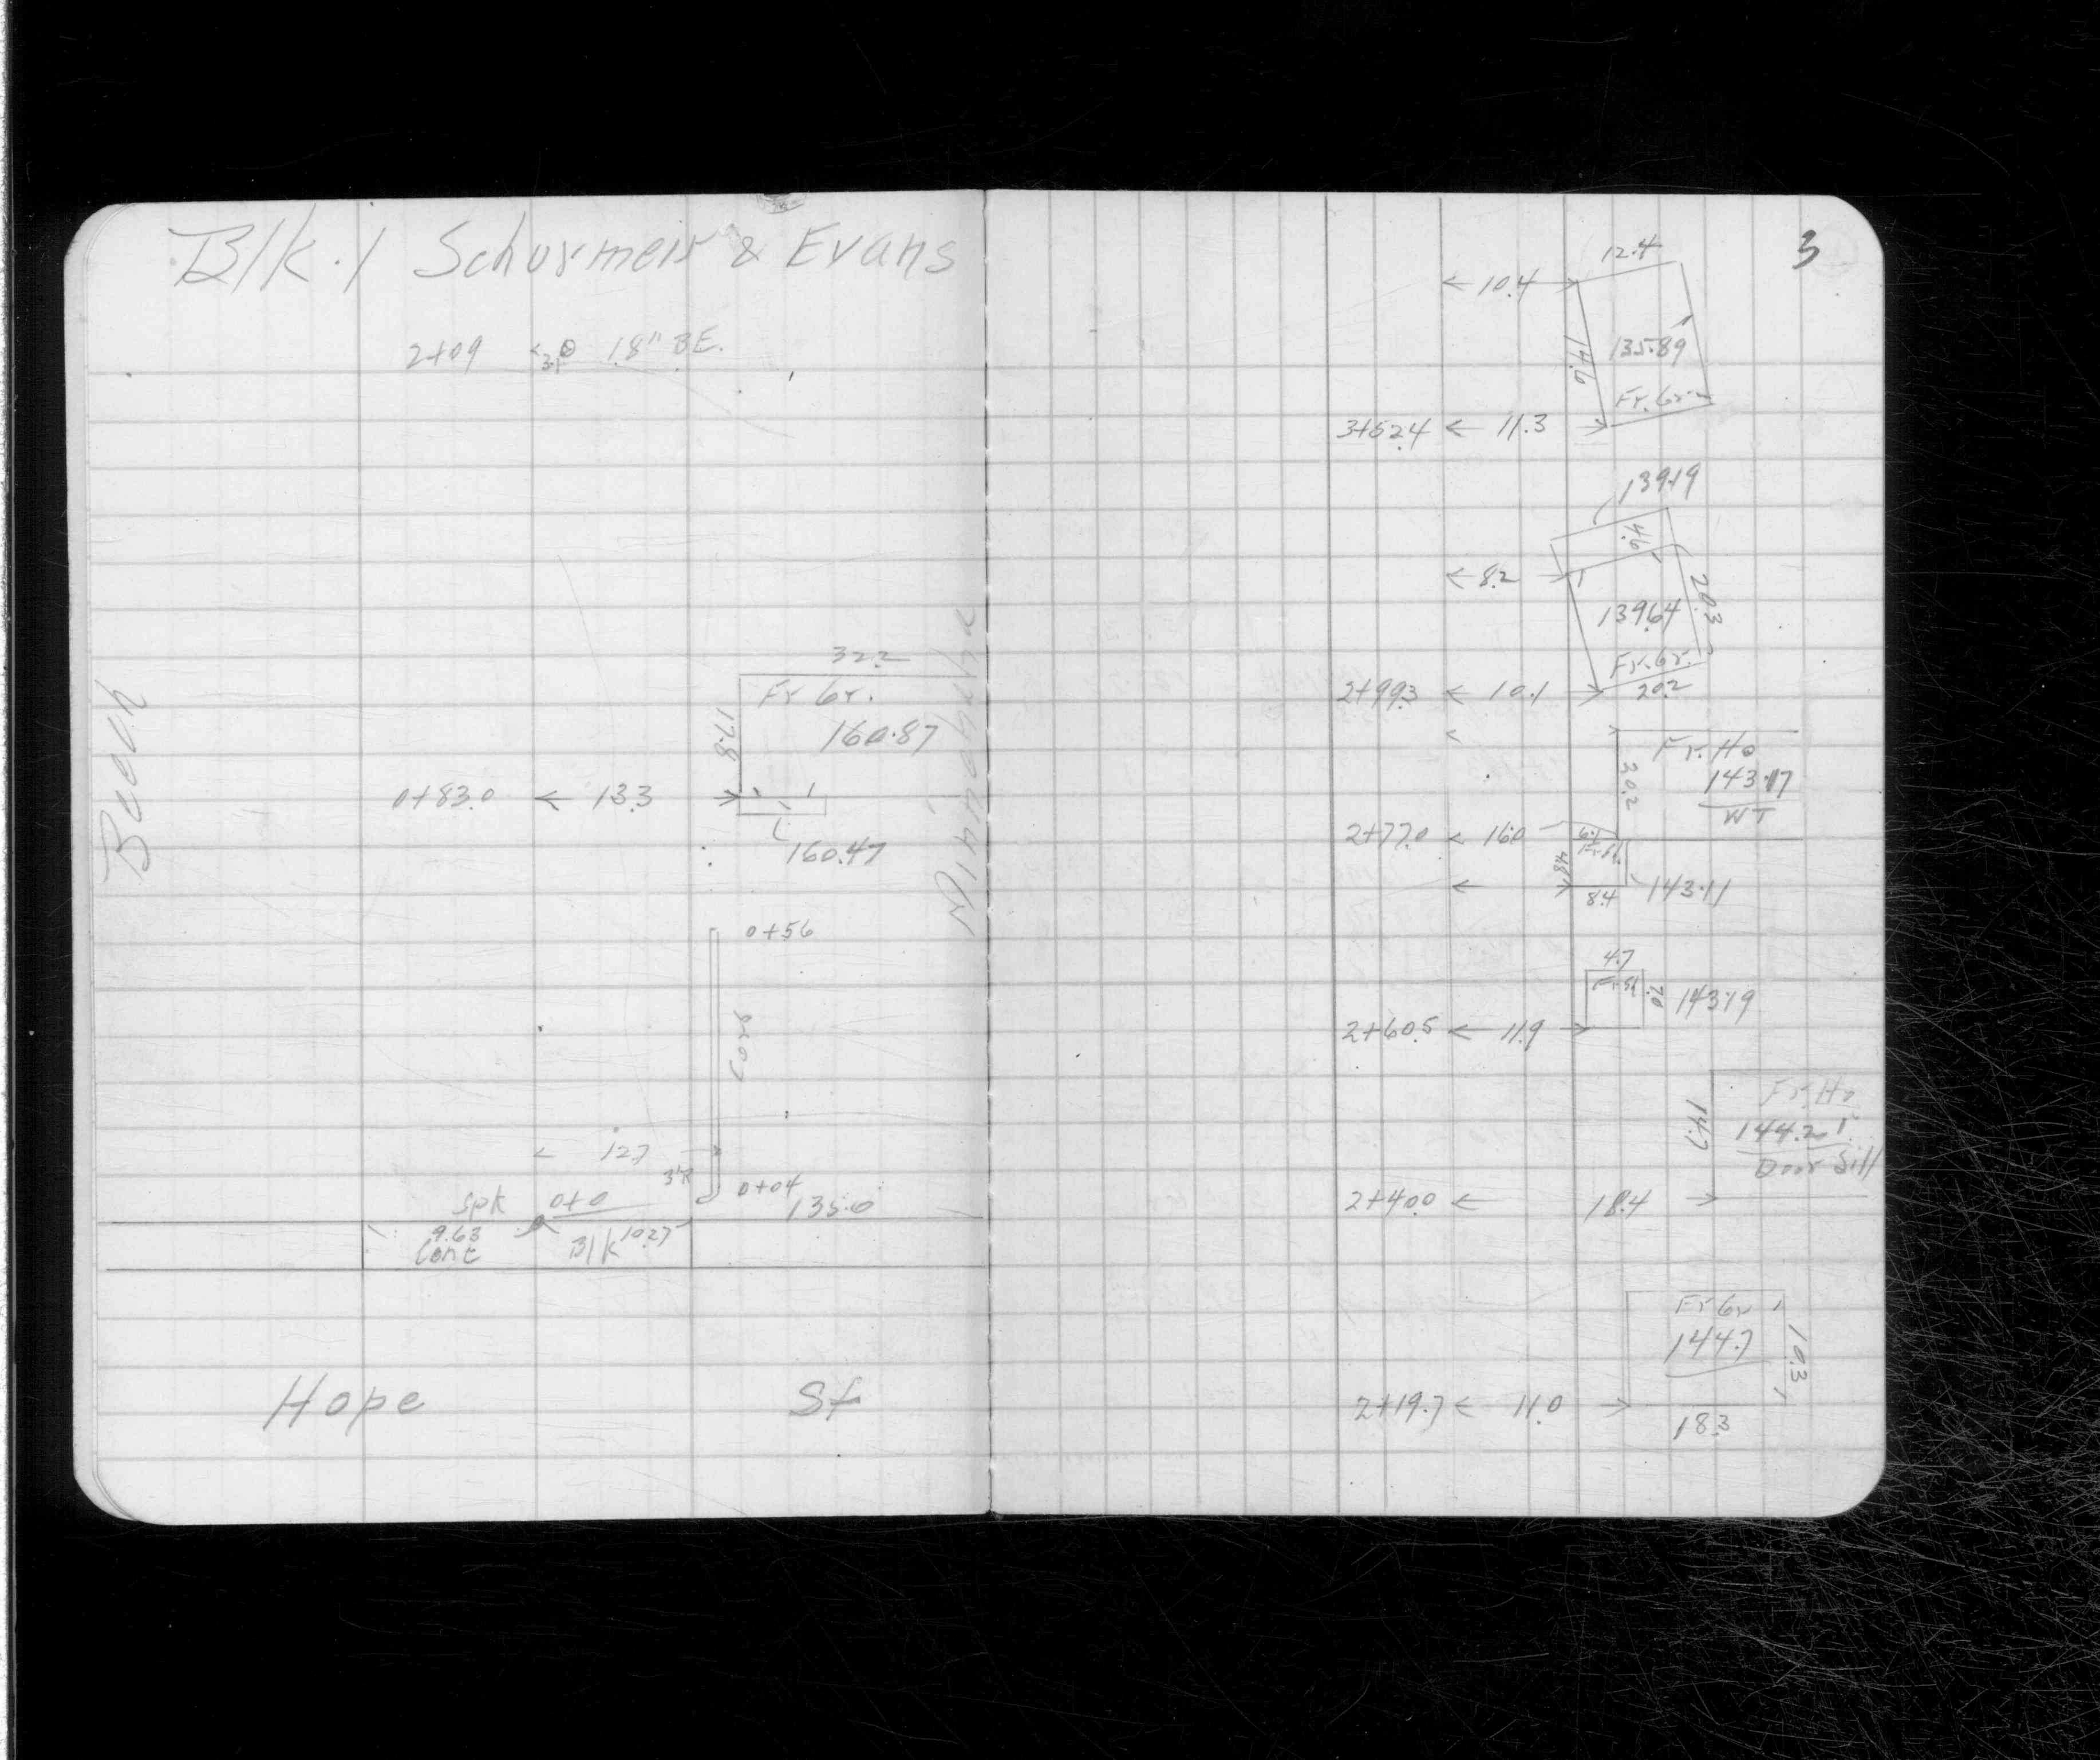 Blk. 1 Schurmeir & Evans
2+09 3.0 18" B.E.
32.2
Fr Gr.
17.8
160.87
0+83.0 ← 13.3 →
160.47
Beech
0+56
12.7
0+04
135.0
Spk 0+0
9.63
Conc
Blk 10.27
Hope St
3
12.4
← 10.4 →
14.6
135.89
Fr. Gr.
3+52.4 ← 11.3 →
139.19
4.6
← 8.2
20.3
139.64
Fr. Gr.
2+99.3 ← 10.1 →
20.2
Fr. Ho
143.17
WT
30.2
2+77.0 ← 16.0
8.4
143.11
4.7
Fr Sh
7.0
143.19
2+60.5 ← 11.9 →
Fr. Ho
144.21
Door Sill
14.7
2+40.0 ← 18.4 →
Fr Gr
144.7
10.3
2+19.7 ← 11.0 →
18.3